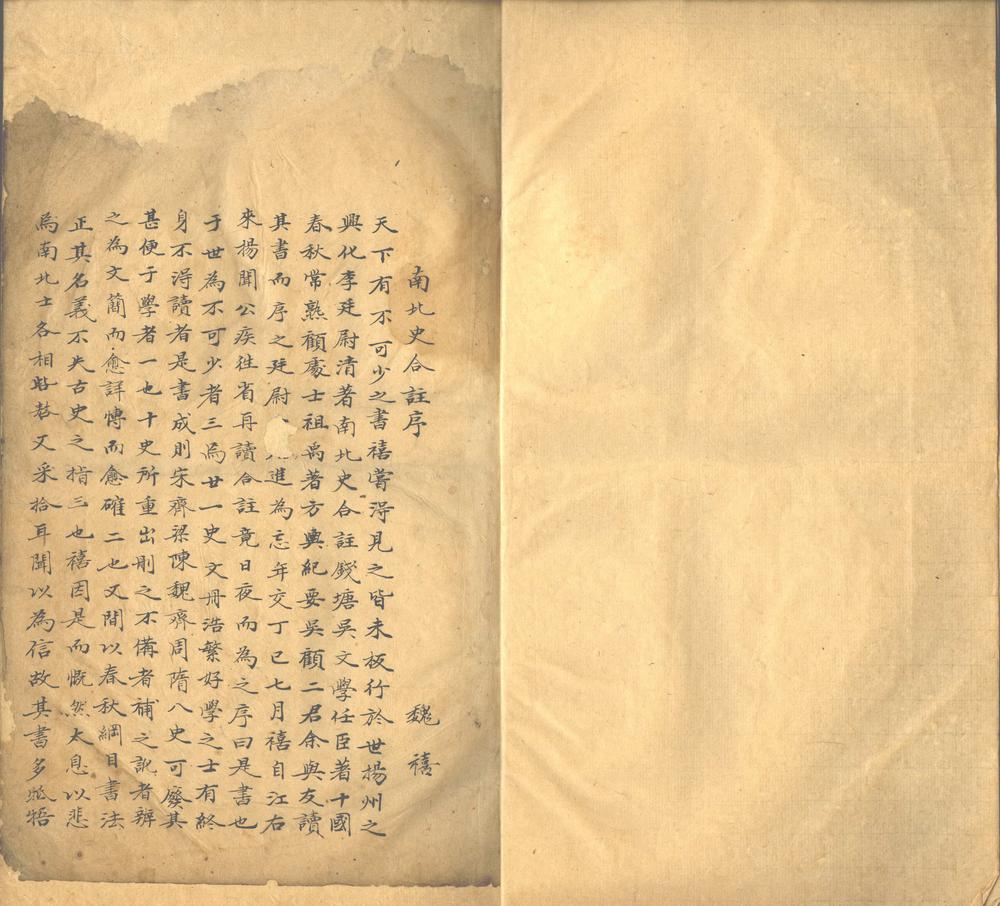 南北史合註序
魏禧
天下有不可少之書禧嘗得見之皆未板行於世揚州之
興化李廷尉清著南北史合註錢塘吳文學任臣著十國
春秋常熟顧處士祖禹著方輿紀要吳顧二君余與友讀
其書而序之廷尉進為忘年交丁巳七月禧自江右
來揚聞公疾徃省再讀合註竟日夜而為之序曰是書也
于世為不可少者三焉廿一史文冊浩繁好學之士有終
身不得讀者是書成則宋齊梁陳魏齊周隋八史可廢其
甚便于學者一也十史所重出刪之不備者補之訛者辨
之為文蕳而愈詳愽而愈確二也又間以春秋綱目書法
正其名義不失古史之指三也禧因是而慨然太息以悲
焉南北士各相又采拾耳聞以為信故其書多牾